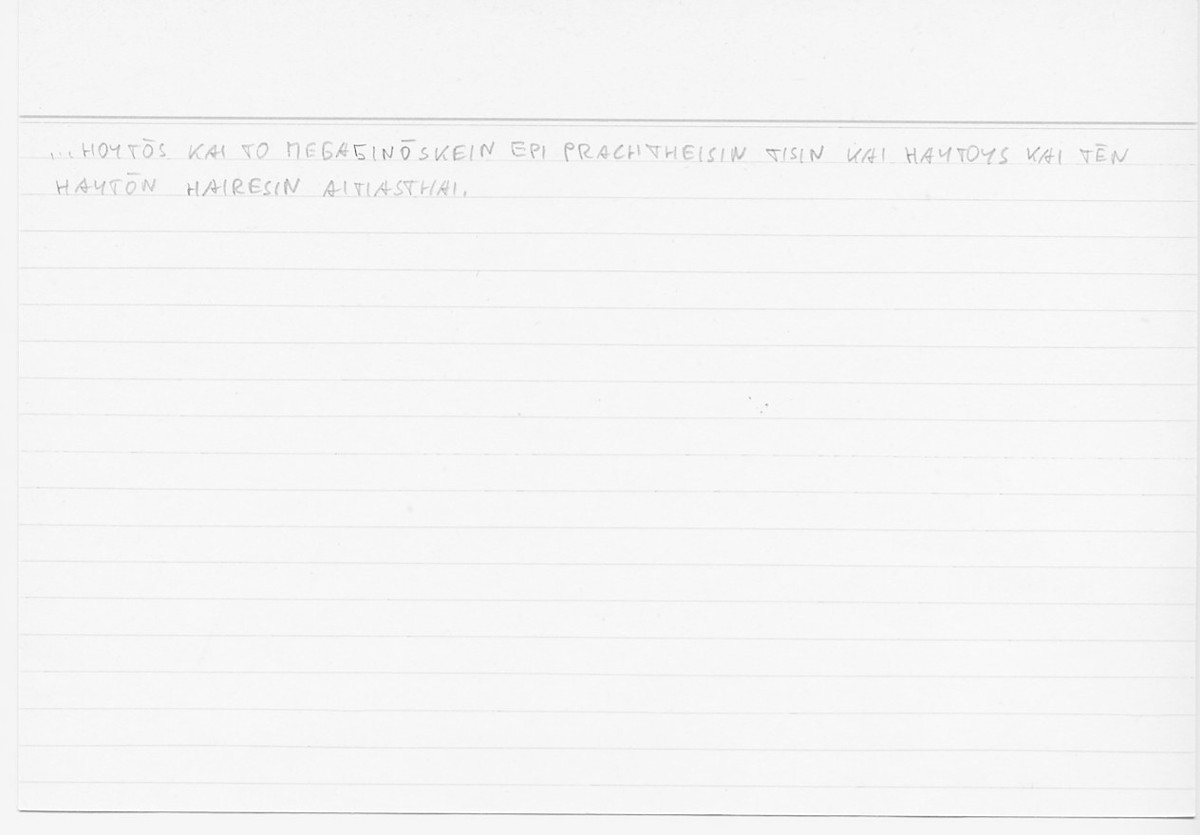 ...HOYTŌS KAI TO MEGAGINŌSKEIN EPI PRACHTHEISIN TISIN KAI HAYTOYS KAI TĒN
HAYTŌN HAIRESIN AITIASTHAI.